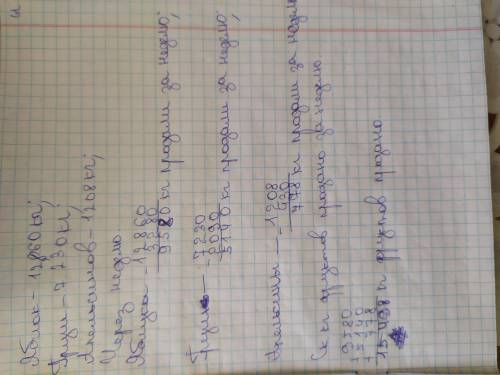 Яблок - 12860 кг;
Груши - 7 230 кг;
Апельсинов - 1208 кг;
Через неделю
Яблука - 12860
3280
9580 кг продали за неделю;
Груши - 7230
2090
5140 кг продали за неделю;
Апельсины - 1208
430
778 кг продали за неделю
Ск кг фруктов продано за неделю
9580
+ 5140
778
15498 кг фруктов продано